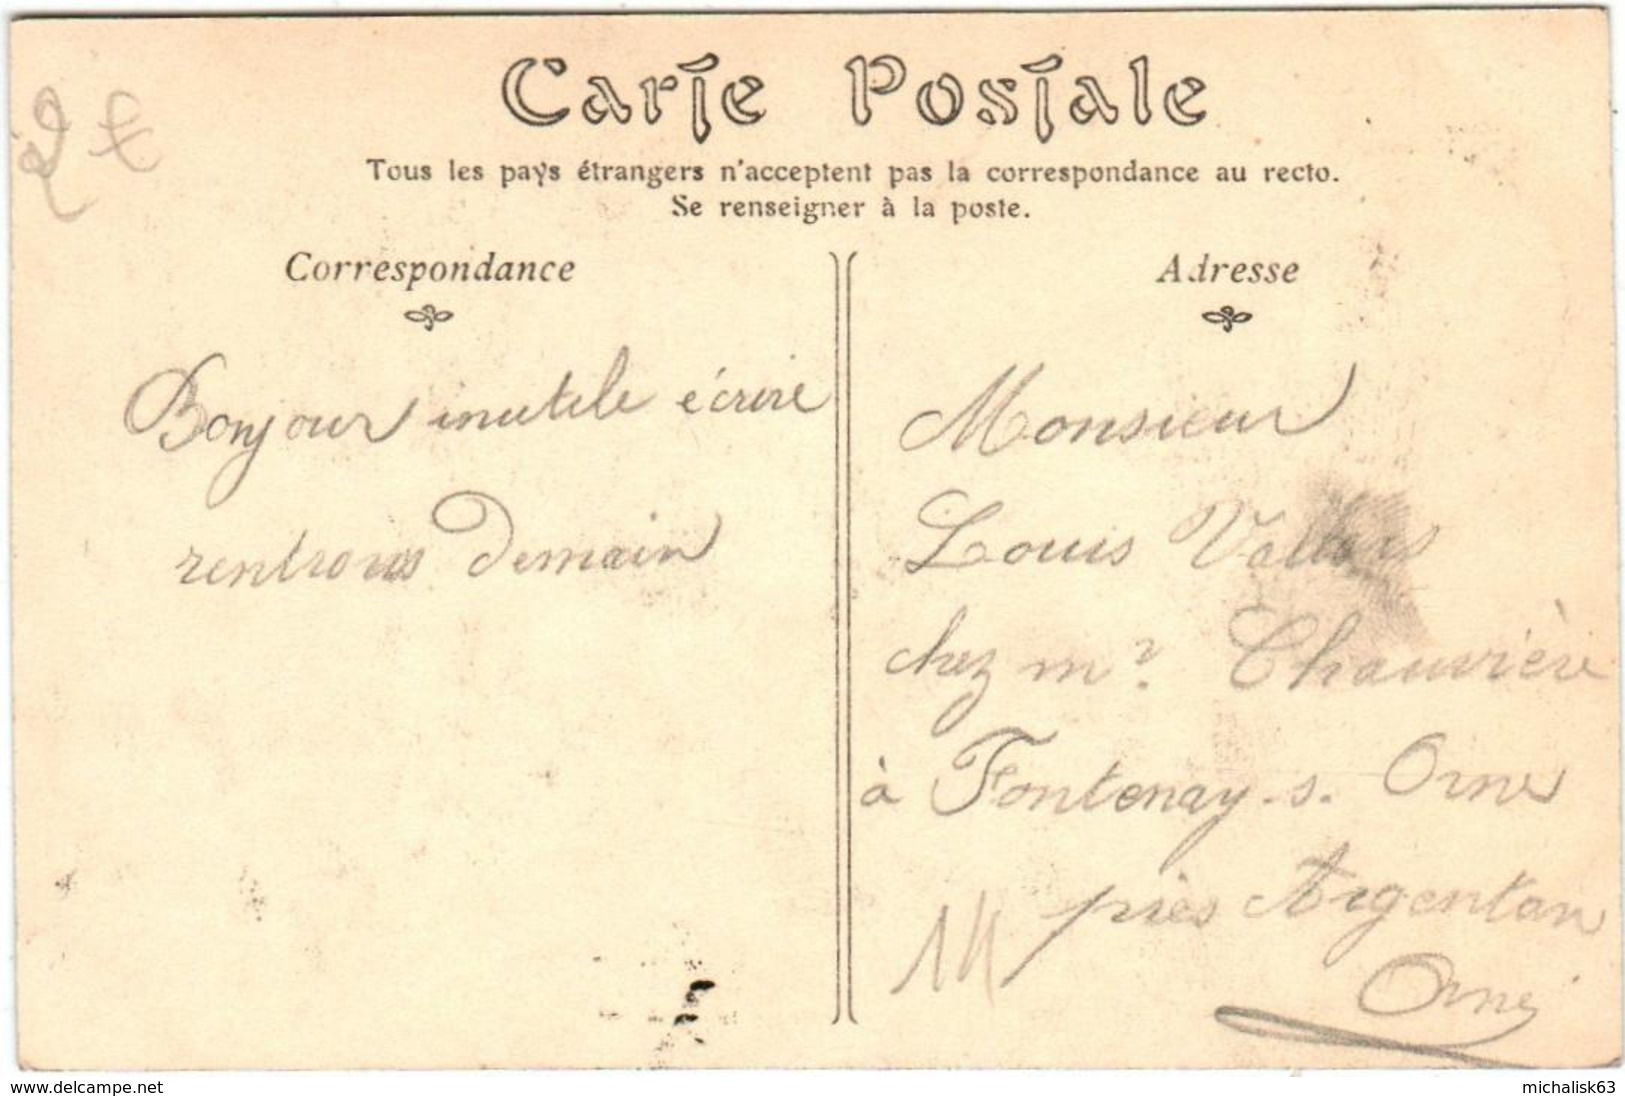 Carte Postale
2 €
Tous les pays étrangers n'acceptent pas la correspondance au recto.
Se renseigner à la poste.
Correspondance
Bonjour inutile écrire
rentrons Demain
Adresse
Monsieur
Louis
chez mr. Chauvière
à Fontenay-s. Orne
près Argentan
Orne
14
www.delcampe.net
michalisk63